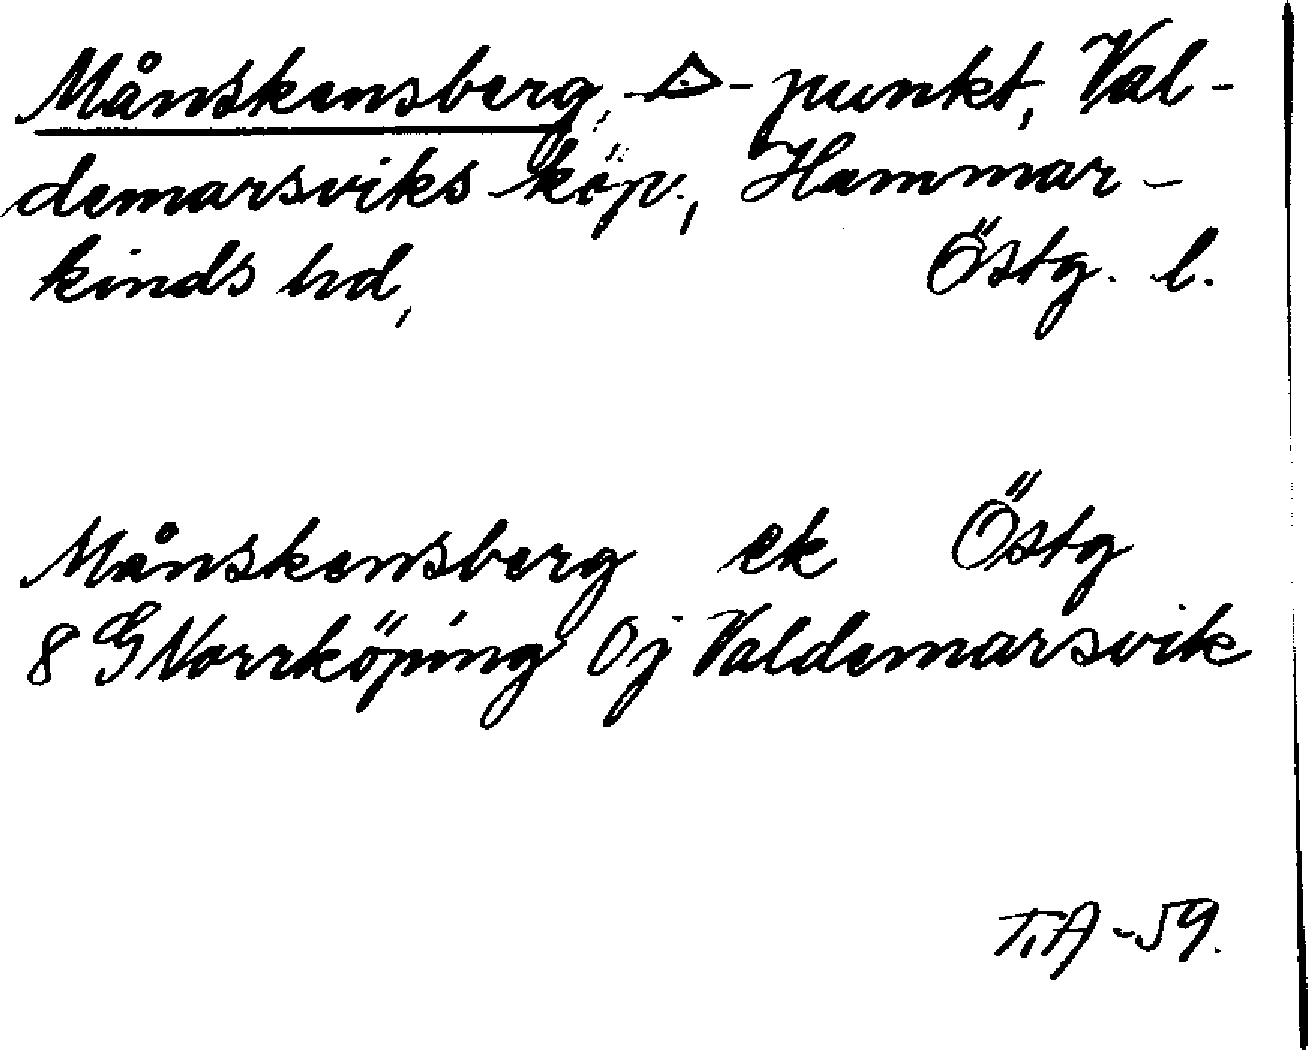 Månskensberg, △-punkt, Val-
demarsviks köp., Hammar-
kinds hd, Östg. l.
Månskensberg ek Östg
8 G Norrköping 0j Valdemarsvik
T.A -59.